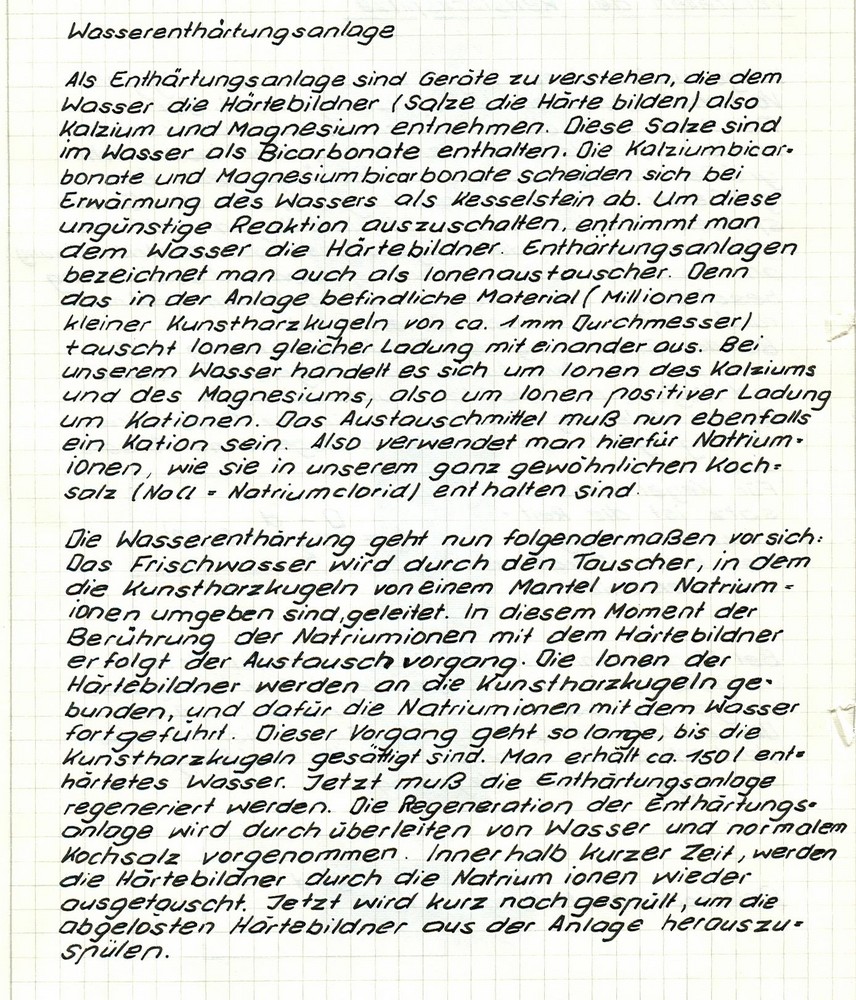 Wasserenthärtungsanlage
Als Enthärtungsanlage sind Geräte zu verstehen, die dem
Wasser die Härtebildner (Salze die Härte bilden) also
Kalzium und Magnesium entnehmen. Diese Salze sind
im Wasser als Bicarbonate enthalten. Die Kalziumbicar-
bonate und Magnesiumbicarbonate scheiden sich bei
Erwärmung des Wassers als Kesselstein ab. Um diese
ungünstige Reaktion auszuschalten, entnimmt man
dem Wasser die Härtebildner. Enthärtungsanlagen
bezeichnet man auch als Ionenaustauscher. Denn
das in der Anlage befindliche Material (Millionen
kleiner Kunstharzkugeln von ca. 1mm Durchmesser)
tauscht Ionen gleicher Ladung miteinander aus. Bei
unserem Wasser handelt es sich um Ionen des Kalziums
und des Magnesiums, also um Ionen positiver Ladung
um Kationen. Das Austauschmittel muß nun ebenfalls
ein Kation sein. Also verwendet man hierfür Natrium-
ionen, wie sie in unserem ganz gewöhnlichen Koch=
salz (NaCl = Natriumclorid) enthalten sind.
Die Wasserenthärtung geht nun folgendermaßen vor sich:
Das Frischwasser wird durch den Tauscher, in dem
die Kunstharzkugeln von einem Mantel von Natrium=
ionen umgeben sind, geleitet. In diesem Moment der
Berührung der Natriumionen mit dem Härtebildner
erfolgt der Austauschvorgang. Die Ionen der
Härtebildner werden an die Kunstharzkugeln ge-
bunden, und dafür die Natriumionen mit dem Wasser
fortgeführt. Dieser Vorgang geht so lange, bis die
Kunstharzkugeln gesättigt sind. Man erhält ca. 150 l ent=
härtetes Wasser. Jetzt muß die Enthärtungsanlage
regeneriert werden. Die Regeneration der Enthärtungs-
anlage wird durch überleiten von Wasser und normalem
Kochsalz vorgenommen. Innerhalb kurzer Zeit, werden
die Härtebildner durch die Natrium ionen wieder
ausgetauscht. Jetzt wird kurz nachgespült, um die
abgelösten Härtebildner aus der Anlage herauszu-
spülen.